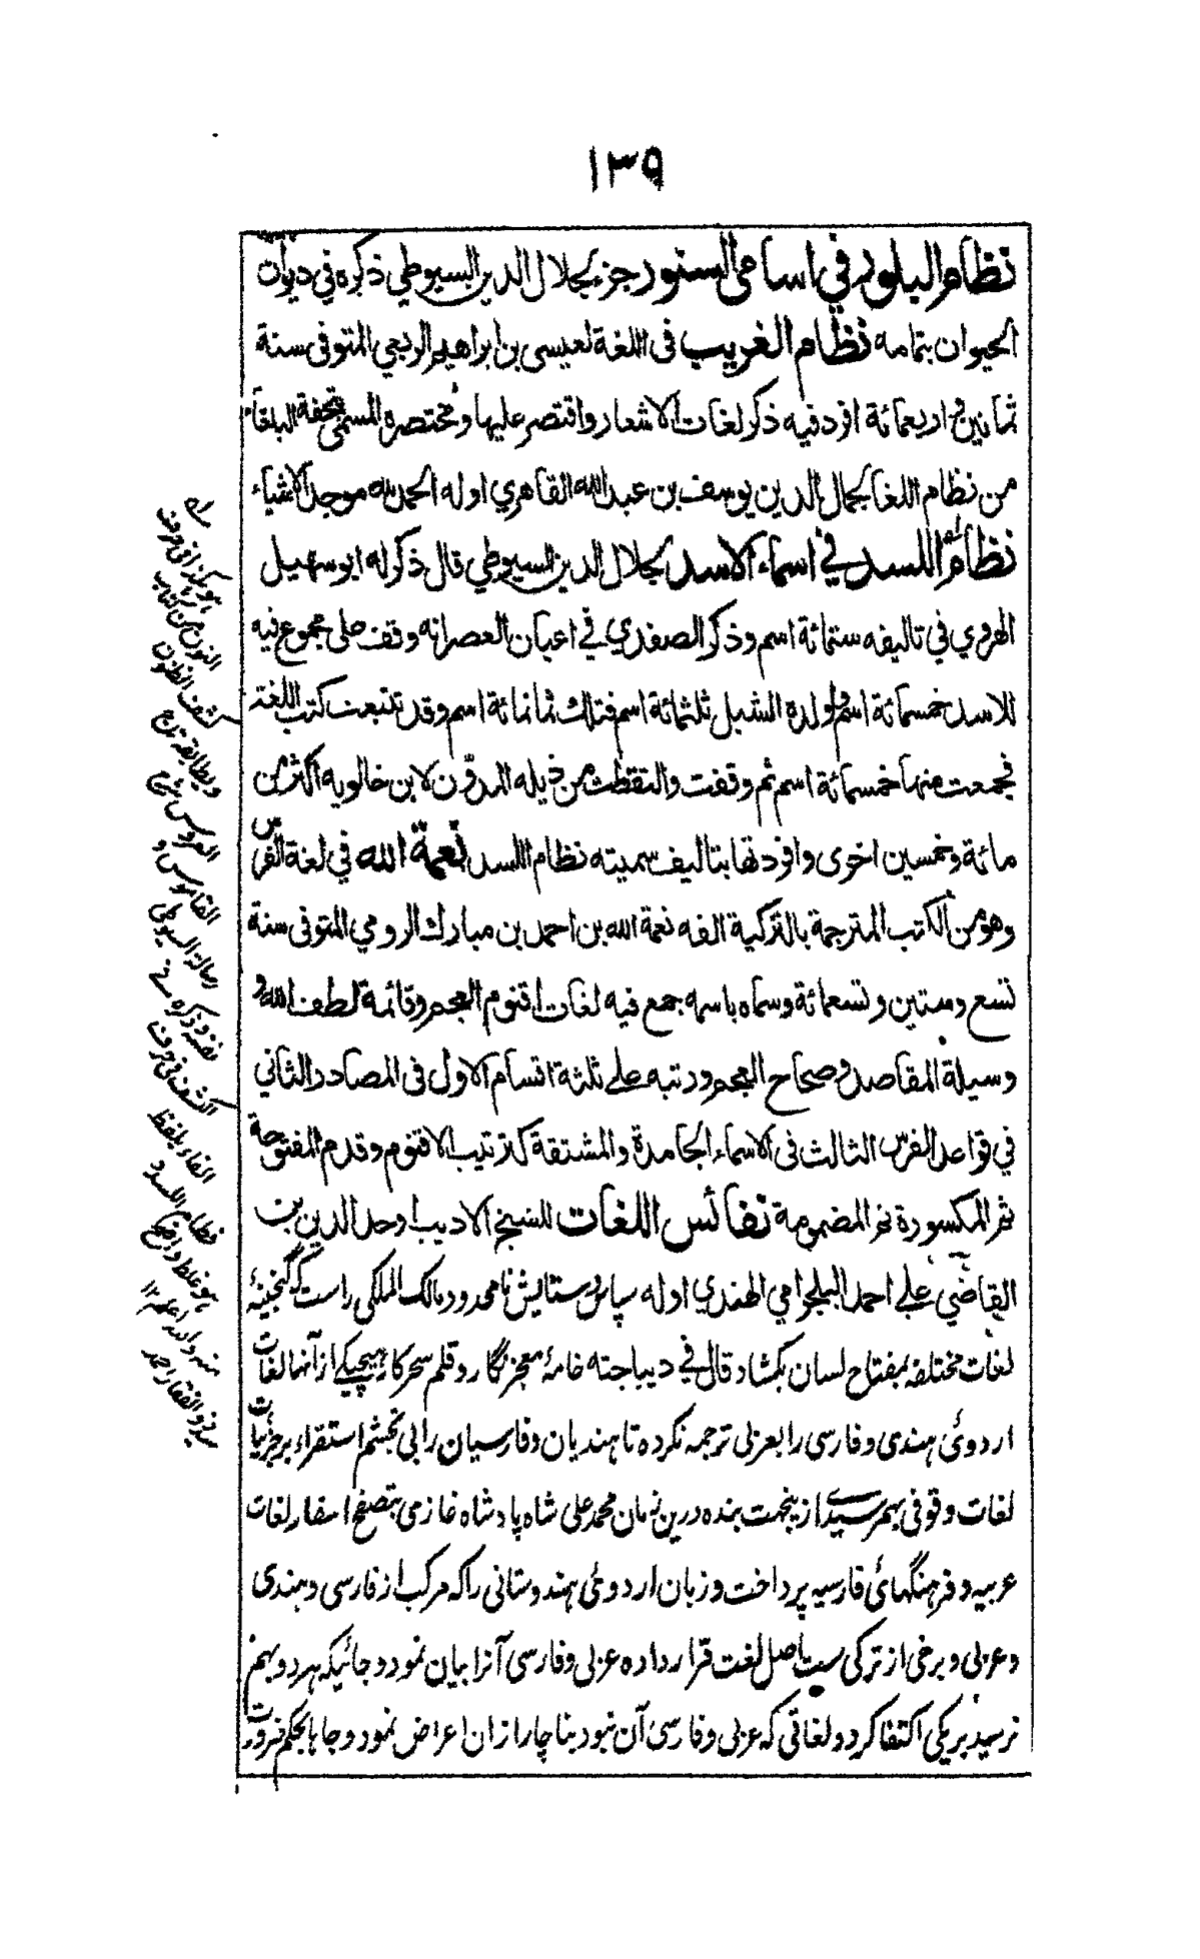 ١٣٩
نظام البلور في اسامى السنور جزء لجلال الدين السيوطي ذكره في ديوان
الحيوان بتمامه نظام الغريب فى اللغة لعيسى بن ابراهيم الربعي المتوفى سنة
ثمانين واربعمائة افرد فيه ذكر لغات الاشعار واقتصر عليها ومختصره المسمى بتحفة البلغاء
من نظام اللغا لجمال الدين يوسف بن عبد الله القاهري اوله الحمد لله موجد الاشياء
نظام اللسد في اسماء الاسد لجلال الدين السيوطي قال ذكر له ابو سهيل
الهروي في تاليفه ستمائة اسم وذكر الصفدي في اعيان العصر انه وقف على مجموع فيه
للاسد خمسمائة اسم ولولده الشبل ثلثمائة اسم فتلك ثمانمائة اسم وقد تتبعت كتب اللغة
فجمعت منها خمسمائة اسم ثم وقفت والتقطت من ذيله المدوّن لابن خالويه اكثر من
مائة وخمسين اخرى وافردتها بتاليف سميته نظام اللسد نعمة الله في لغة الفرس
وهو من الكتب المترجمة بالتركية الفه نعمة الله بن احمد بن مبارك الرومي المتوفى سنة
تسع وستين وتسعمائة وسماه باسمه جمع فيه لغات اقنوم العجم وقائمة لطف الله و
وسيلة المقاصد وصحاح العجم ورتبه على ثلثة اقسام الاول فى المصادر الثاني
في قواعد الفرس الثالث فى الاسماء الجامدة والمشتقة كترتيب الاقنوم وقدم المفتوحة
ثم المكسورة ثم المضمومة نفائس اللغات للشيخ الاديب اوحد الدين بن
القاضي علي احمد البلجرامي الهندي اوله سپاس وستايش نامحدود مالك الملكى راست كه گنجينۀ
لغات مختلفه بمفتاح لسان بكشاد قال في ديباجته خامۀ معجز نگار و قلم سحر كار هيچيكے از آنها لغات
اردوئ هندى وفارسى را بعربى ترجمه نكرده تا هنديان وفارسيان را بى تجشم استقراء بر جزئيات
لغات وقوفى بهم رسيدے ازينجهت بنده درين زمان محمد على شاه پادشاه غازى بتصفح اسفار لغات
عربيه و فرهنگهائ فارسيه پرداخت و زبان اردوئ هندوستانى را كه مركب از فارسى و هندى
و عربى و برخى از تركى ست اصل لغت قرار داده عربى و فارسى آنرا بيان نمود و جائيكه هر دو بهم
نرسيد بر يكى اكتفا كرد و لغاتى كه عربى و فارسئ آن نبود بناچار ازان اعراض نمود و جاها بحكم ضرورت
هو مذكور فى حرف
النون من كتاب
كشف الظنون
ويطابقه تاج
العروس شرح
القاموس و
رسالة السيوطى
نفسه وذكره فى
الكشف فى حرف
الفاء بلفظ
فطام اللسد
وهو غلط واضح
والله اعلم ١٢
سيد ذو الفقار احمد